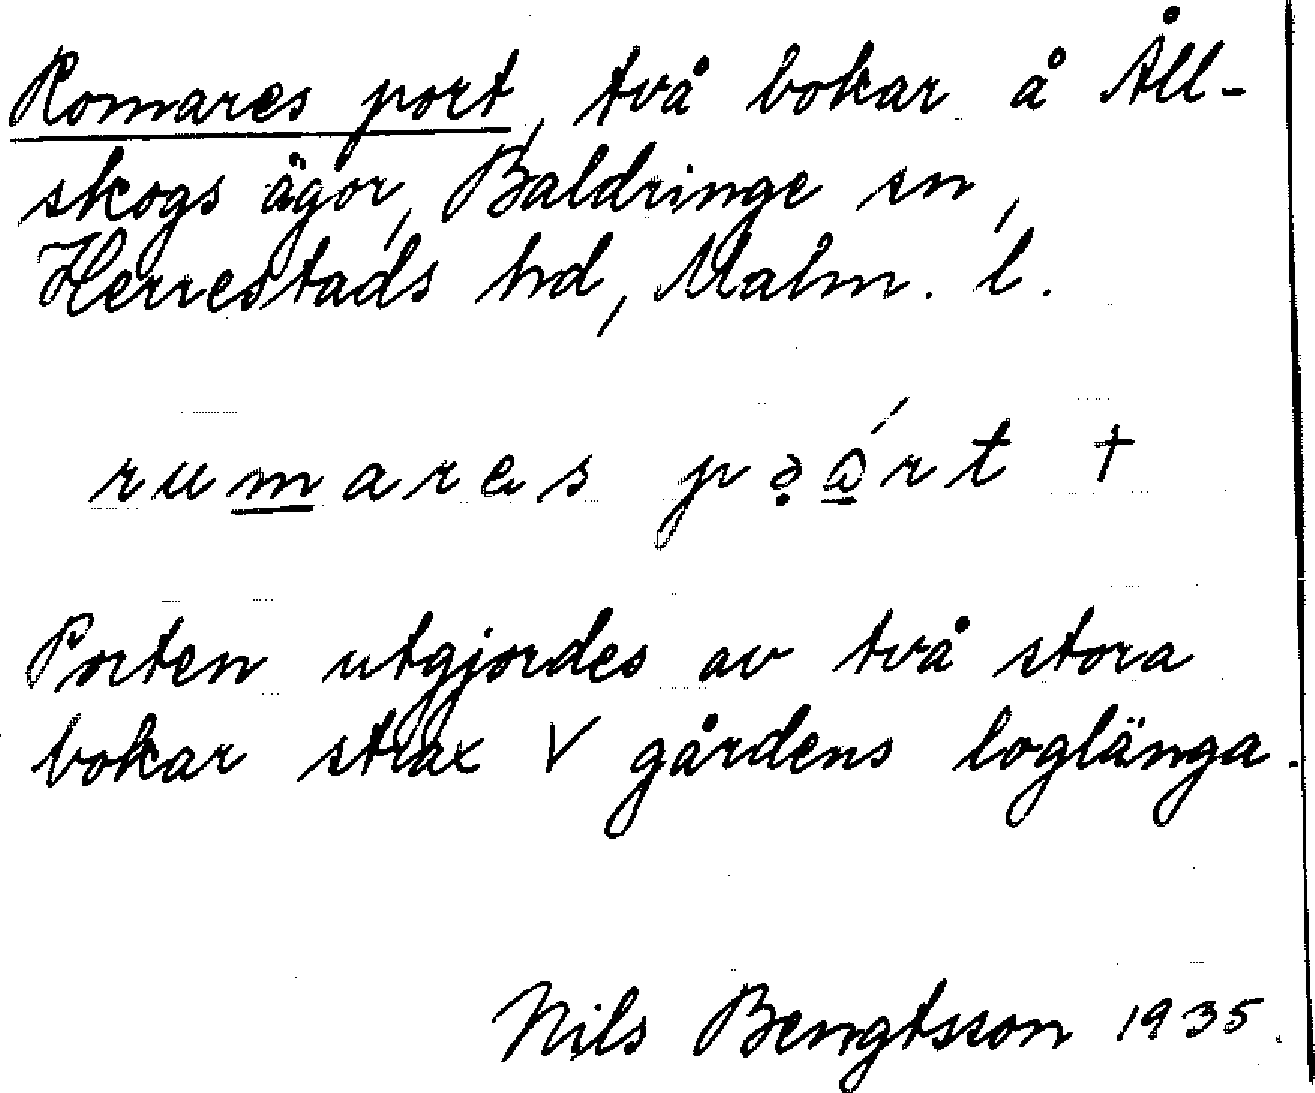 Romares port, två bokar å Åll-
skogs ägor, Baldringe sn,
Herrestads hd, Malm. l.
rumares pə̣ɷ́rt †
Porten utgjordes av två stora
bokar strax V gårdens loglänga.
Nils Bengtsson 1935.